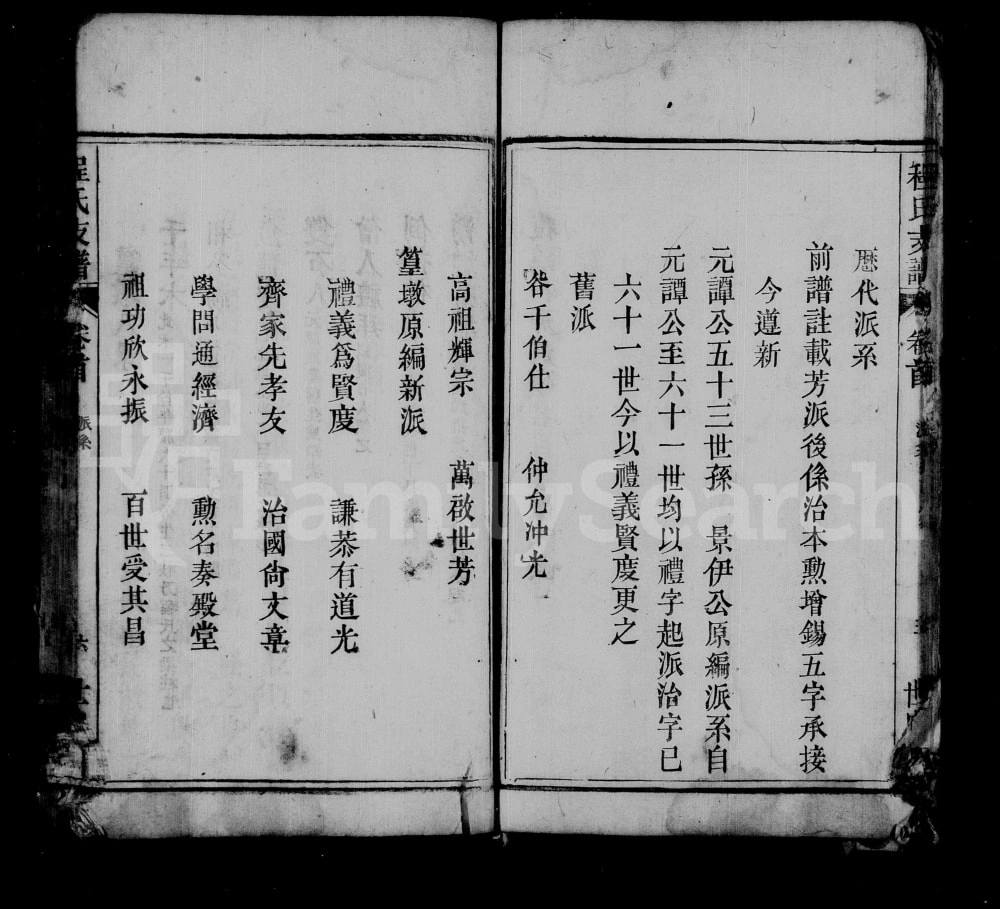 程氏支譜 卷首 派系
歷代派系
前譜註載芳派後係治本勲增錫五字承接
今遵新
元譚公五十三世孫 景伊公原編派系自
元譚公至六十一世均以禮字起派治字已
六十一世今以禮義賢度更之
舊派
谷千伯仕 仲允冲光
高祖輝宗 萬啟世芳
篁墩原編新派
禮義爲賢度 謙恭有道光
齊家先孝友 治國尙文章
學問通經濟 勲名奏殿堂
祖功欣永振 百世受其昌
程氏支譜 卷首 派系 六
FamilySearch